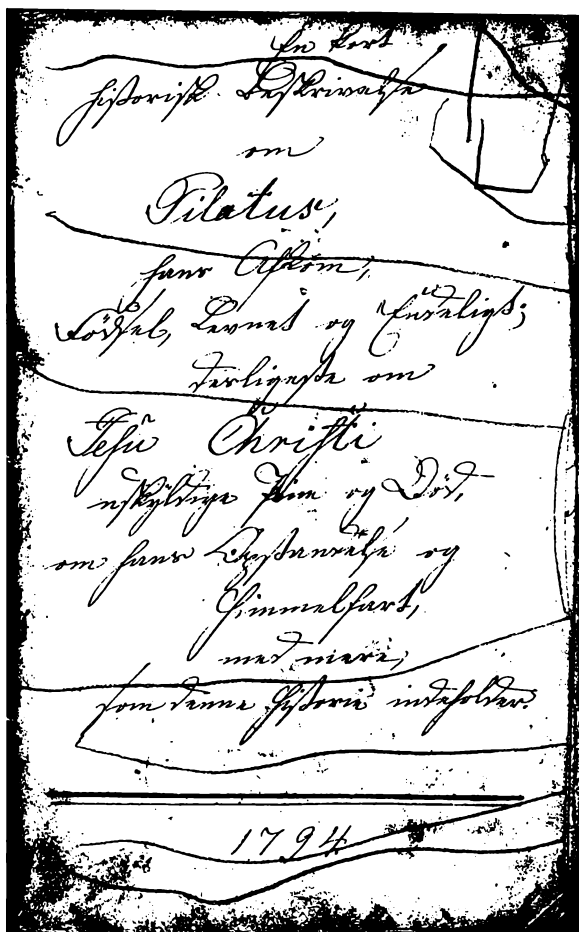 En kort
historisk Beskrivelse
om
Pilatus,
hans Afkom,
Födsel, Levnet og Endeligt;
derligeste om
Jesu Christi
uskyldige Pine og Död,
om hans Opstandelse og
Himmelfart,
med mere,
som denne Historie indeholder.
1794